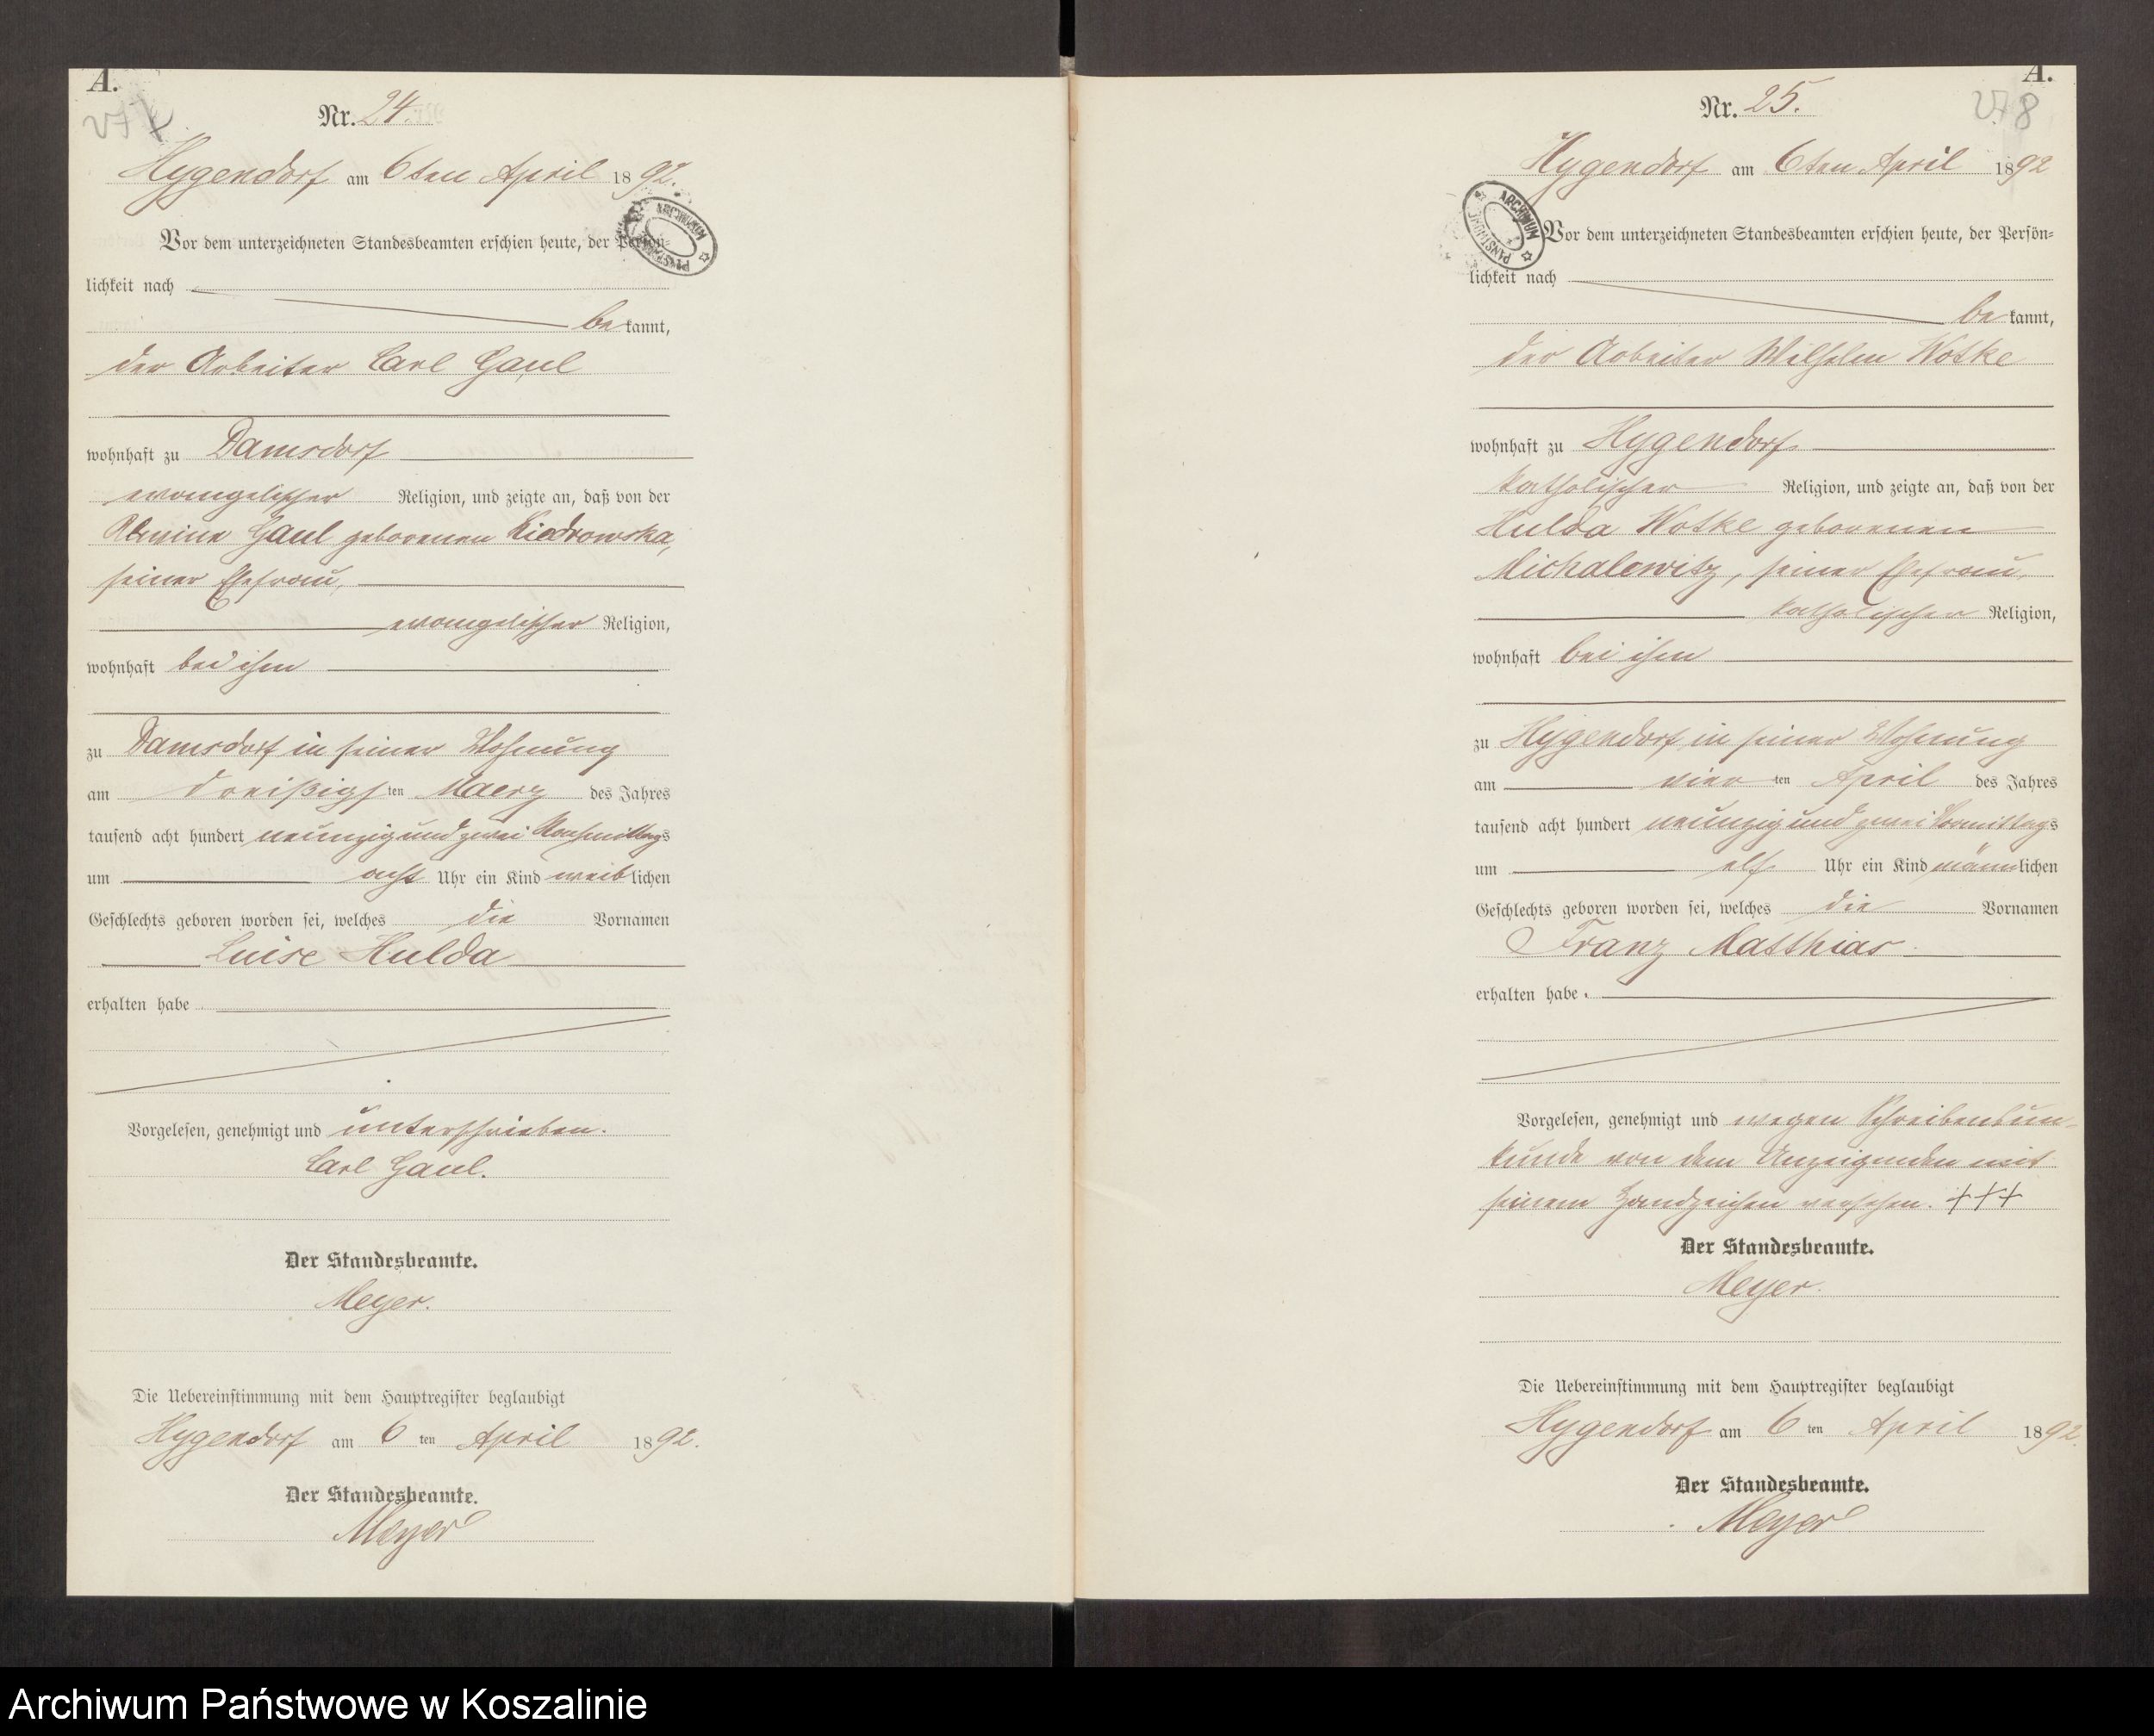 A.
Nr. 24.
Hygendorf am 6ten April 1892.
Vor dem unterzeichneten Standesbeamten erschien heute, der Persön=
lichkeit nach
be kannt,
der Arbeiter Carl Gaul
wohnhaft zu Damsdorf
evangelischer Religion, und zeigte an, daß von der
Gaul geborenen Kiedrowska,
seiner Ehefrau,
evangelischer Religion,
wohnhaft bei ihm
zu Damsdorf in seiner Wohnung
am dreißigsten Maerz des Jahres
tausend acht hundert neunzig und zwei Nachmittags
um acht Uhr ein Kind weiblichen
Geschlechts geboren worden sei, welches die Vornamen
Luise Hulda
erhalten habe.
Vorgelesen, genehmigt und unterschrieben.
Carl Gaul.
Der Standesbeamte.
Meyer.
Die Uebereinstimmung mit dem Hauptregister beglaubigt
Hygendorf am 6 ten April 1892.
Der Standesbeamte.
Meyer
A.
278
Nr. 25.
Hygendorf am 6ten April 1892
ARCHIWUM PAŃSTWOWE
Vor dem unterzeichneten Standesbeamten erschien heute, der Persön=
lichkeit nach
be kannt,
der Arbeiter Wilhelm Wotke
wohnhaft zu Hygendorf
katholischer Religion, und zeigte an, daß von der
Hulda Wotke geborenen
Michalowitz, seiner Ehefrau,
katholischer Religion,
wohnhaft bei ihm
zu Hygendorf in seiner Wohnung
am vier ten April des Jahres
tausend acht hundert neunzig und zwei Vormittags
um elf Uhr ein Kind männlichen
Geschlechts geboren worden sei, welches die Vornamen
Franz Matthias
erhalten habe.
Vorgelesen, genehmigt und wegen Schreibensun=
kunde von dem Anzeigenden mit
seinem Handzeichen versehen. +++
Der Standesbeamte.
Meyer.
Die Uebereinstimmung mit dem Hauptregister beglaubigt
Hygendorf am 6 ten April 1892.
Der Standesbeamte.
Meyer
Archiwum Państwowe w Koszalinie